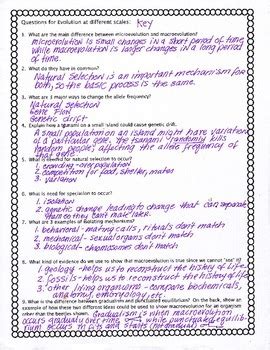 Questions for Evolution at different scales: Key
1. What are the main difference between microevolution and macroevolution?
microevolution is small changes in a short period of time,
while macroevolution is larger changes in a long period
of time.
2. What do they have in common?
Natural Selection is an important mechanism for
both, so the basic process is the same.
3. What are 3 major ways to change the allele frequency?
Natural selection
Gene Flow
Genetic drift
4. Explain how a tsunami on a small island could cause genetic drift.
A small population on an island might have variation
of a particular gene, the tsunami "randomly kills
random people", affecting the allele frequency of
that gene.
5. What is needed for natural selection to occur?
1. crowding - over population
2. competition for food, shelter, mates
3. variation
6. What is need for speciation to occur?
1. isolation
2. genetic change leading to change that can
so they can't mate.
7. What are 3 examples of isolating mechanisms?
1. behavioral - mating calls, rituals don't match
2. mechanical - sexual organs don't match
3. biological - chromosomes don't match
8. What kind of evidence do we use to show that macroevolution is true since we cannot "see" it?
1. geology - helps us to reconstruct the history of Life
2. Fossils - helps us to reconstruct the history of life
3. other living organisms - compare biochemicals,
anatomy, embryology etc.
9. What is the difference between gradualism and punctuated equilibrium? On the back, show an
example of how these two different ideas could be used to show macroevolution for an organism
other than the berries shown. Gradualism is when macroevolution
occurs gradual over time, while punctuated equilib-
rium occurs in fits and starts (not gradual)